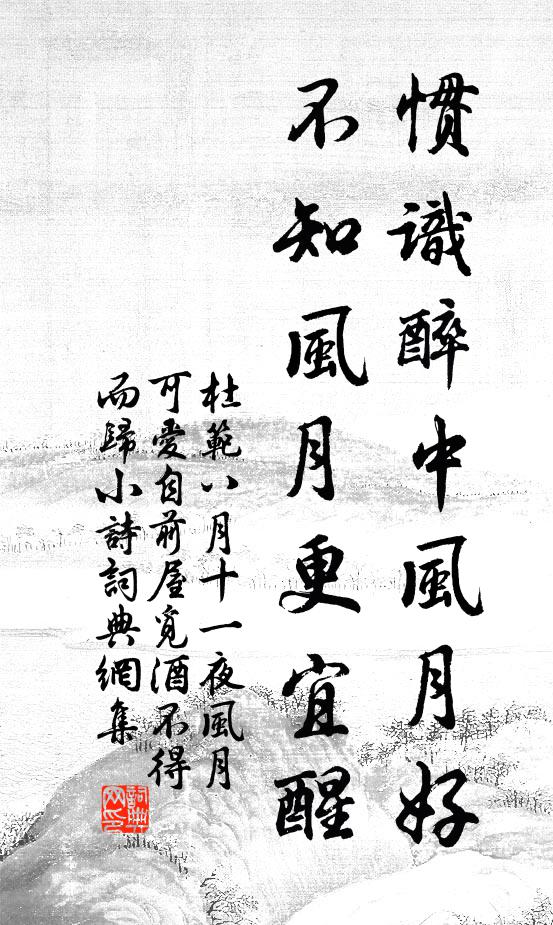 慣識醉中風月好
不知風月更宜醒
杜範八月十一夜風月
可愛自前屋覓酒不得
而歸小詩詞典網集